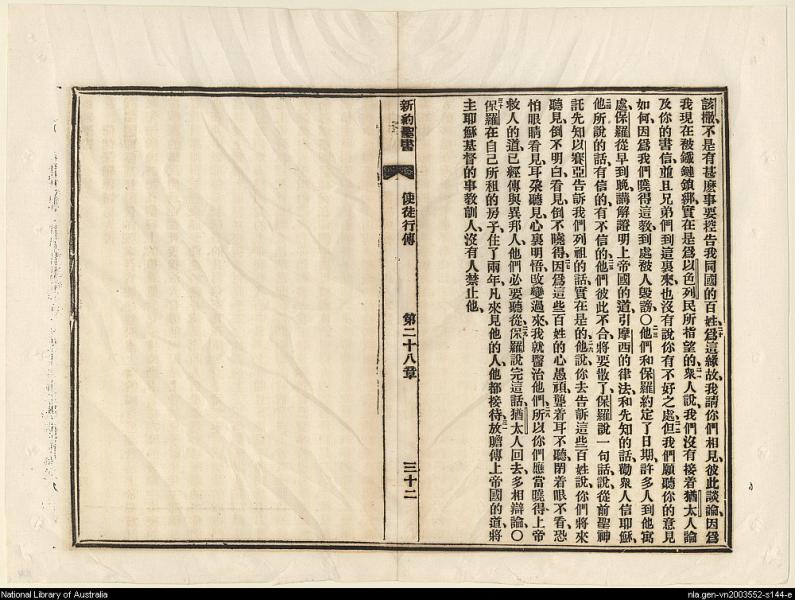 該撒、不是有甚麽事要控告我同國的百姓、爲這緣故、我請你們相見、彼此談論、因爲
我現在被鐵鏈鎖綁、實在是爲以色列民所指望的、衆人說、我們沒有接着猶太人論
及你的書信、並且兄弟們到這裏來、也沒有說你有不好之處、但我們願聽你的意見
如何、因爲我們曉得這教、到處被人毀謗、〇他們和保羅約定了日期、許多人到他寓
處、保羅從早到晚、講解證明上帝國的道、引摩西的律法、和先知的話、勸衆人信耶穌、
他所說的話、有信的、有不信的、他們彼此不合、將要散了、保羅說一句話、說、從前聖神
託先知以賽亞告訴我們列祖的話、實在是的、他說、你去告訴這些百姓說、你們將來
聽見、倒不明白、看見、倒不曉得、因爲這些百姓的心愚頑、聾着耳不聽、閉着眼不看、恐
怕眼睛看見、耳朶聽見、心裏明悟、改變過來、我就醫治他們、所以你們應當曉得上帝
救人的道、已經傳與異邦人、他們必要聽從、保羅說完這話、猶太人回去、多相辯論、〇
保羅在自己所租的房子、住了兩年、凡來見他的人、他都接待、放膽傳上帝國的道、將
主耶穌基督的事教訓人、沒有人禁止他、
新約聖書 使徒行傳 第二十八章 三十二
National Library of Australia
nla.gen-vn2003552-s144-e